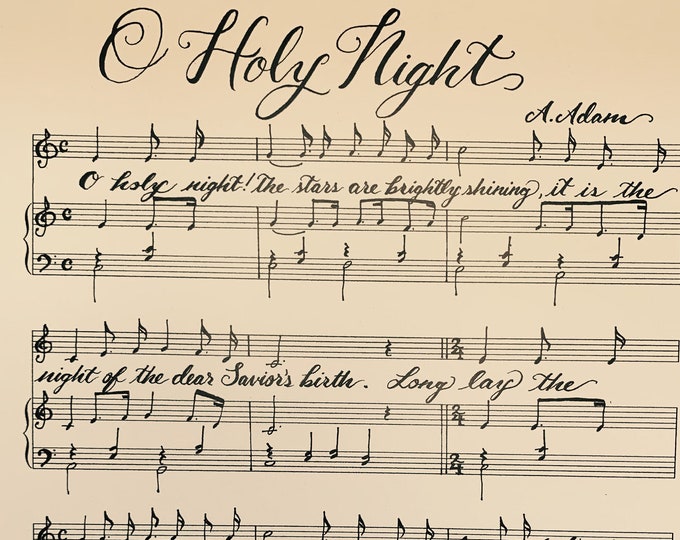 O Holy Night
A. Adam
O holy night! the stars are brightly shining, it is the
night of the dear Savior's birth. Long lay the